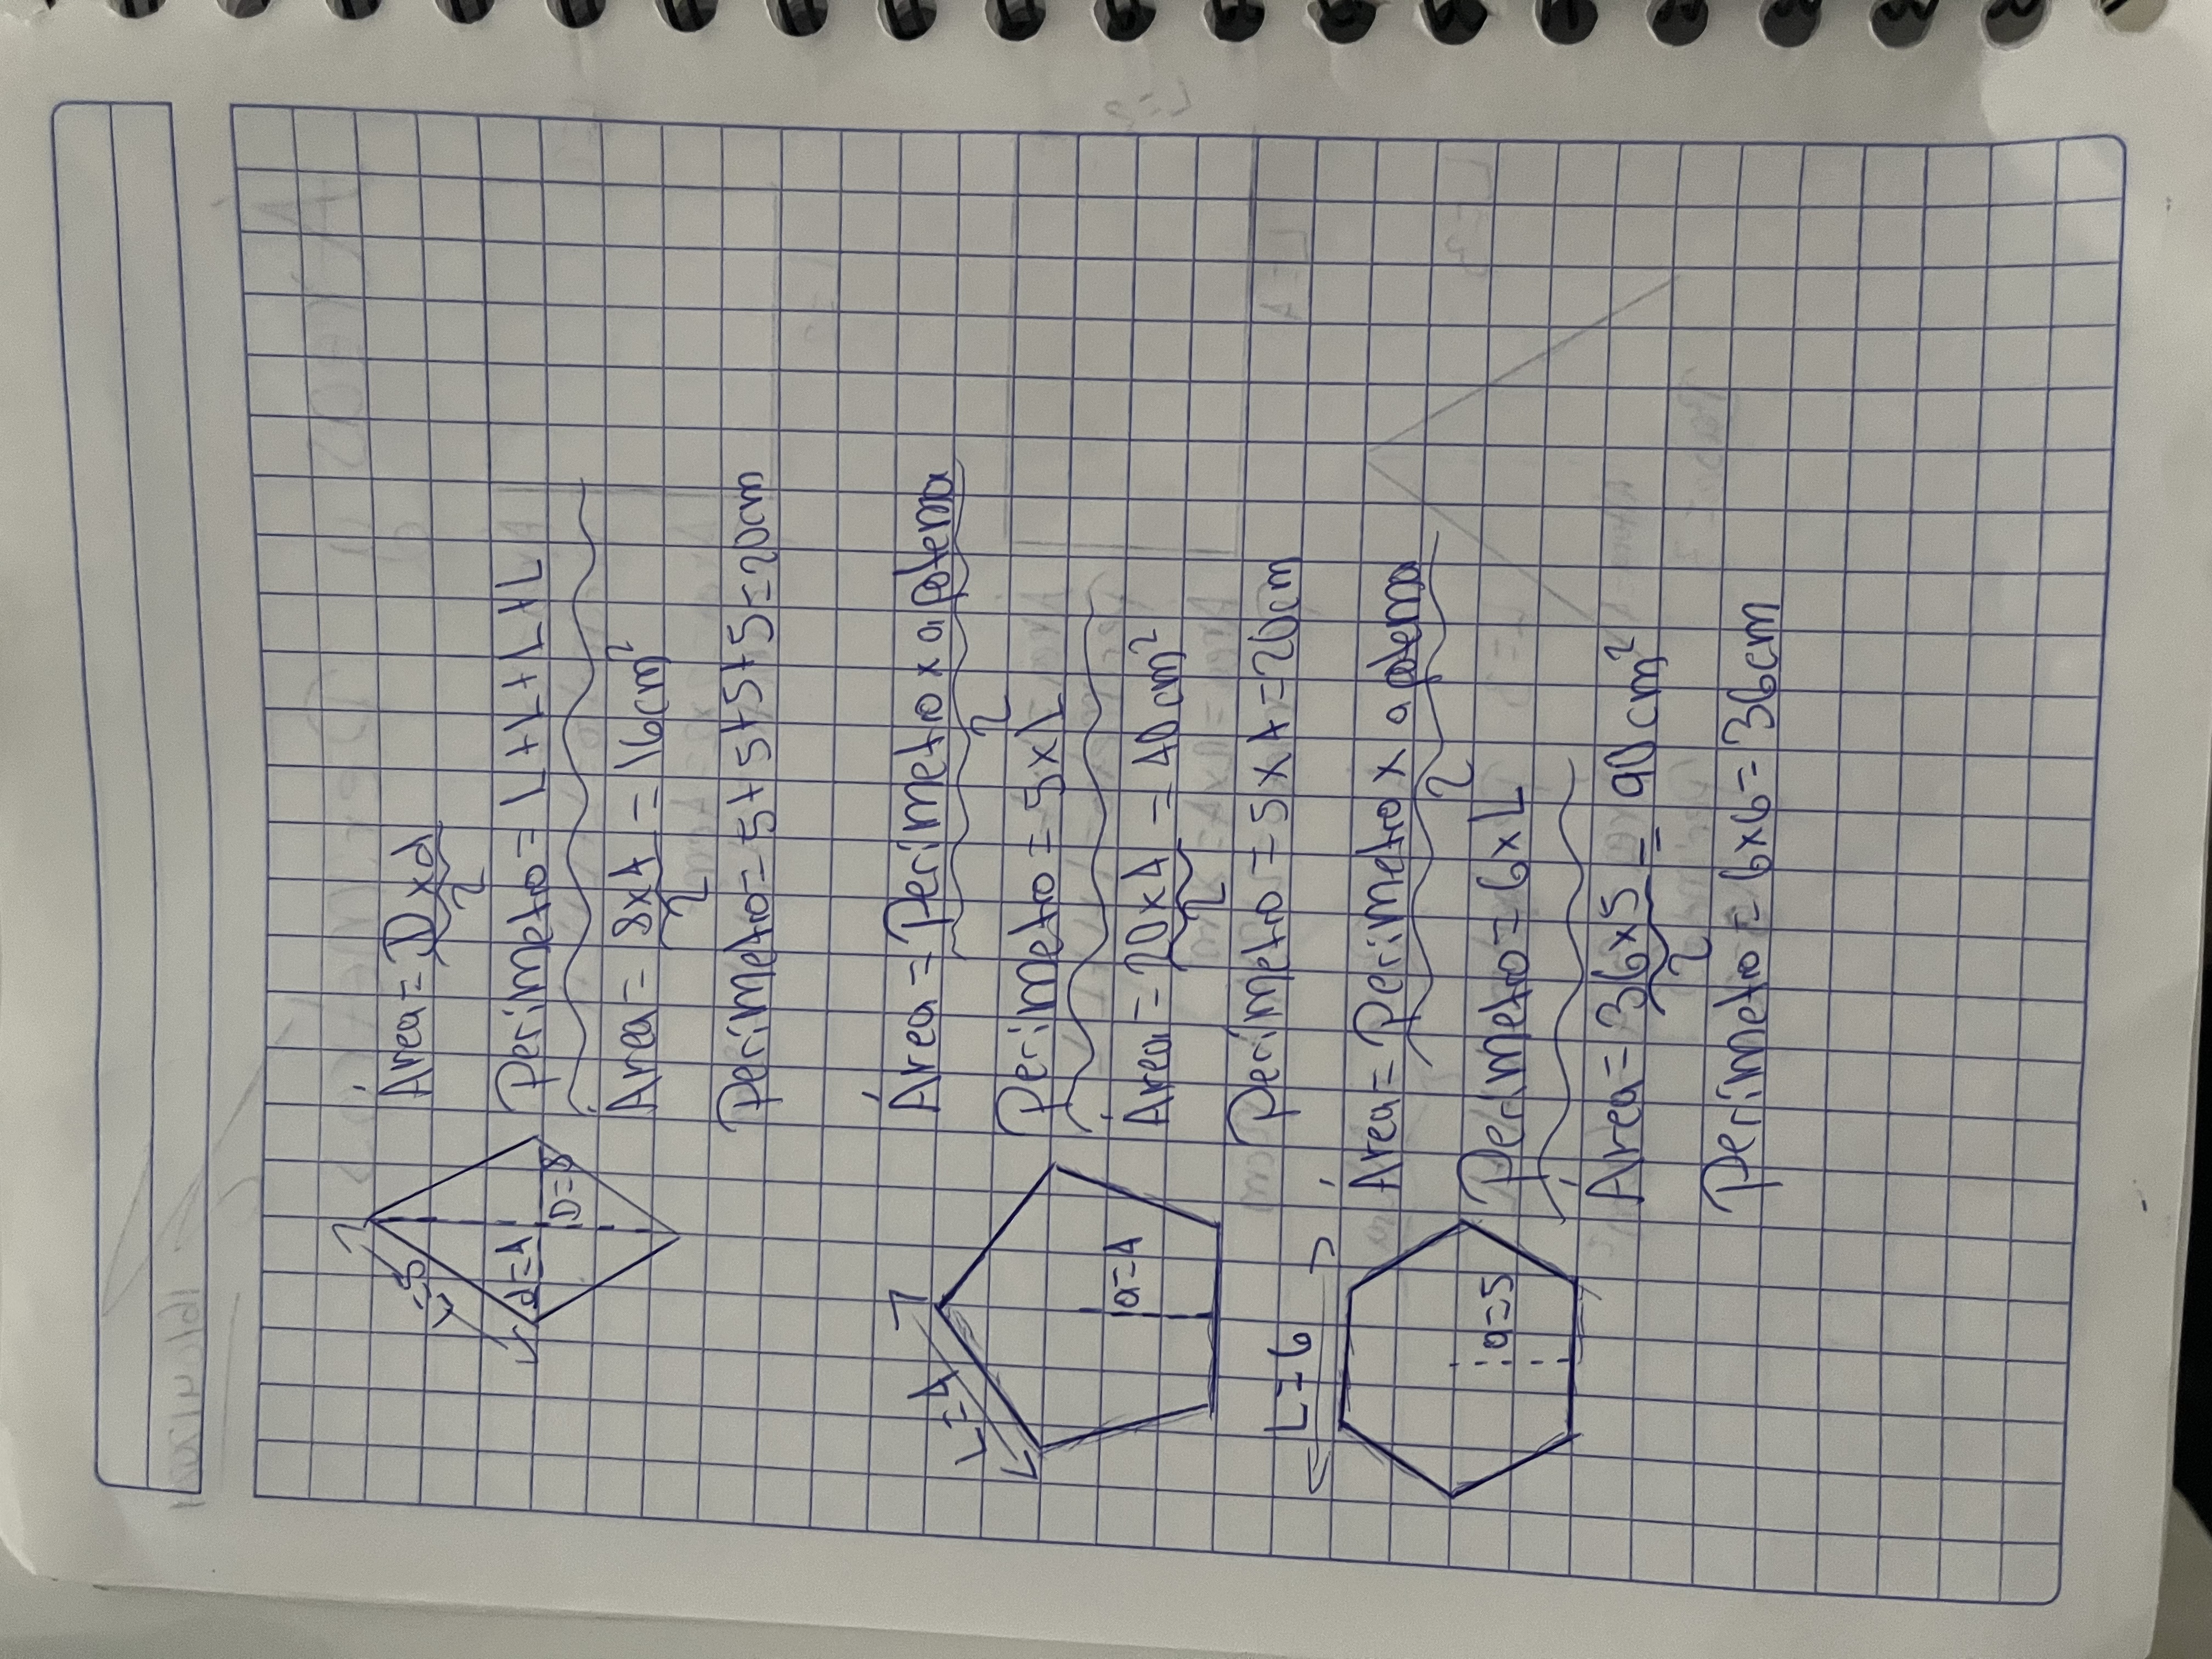 L=5
d=4
D=8
Área = D x d
2
Perimetro = L+L+L+L
Área = 8x4 = 16cm²
2
Perimetro = 5+5+5+5=20cm
L=4
a=4
Área = Perimetro x apotema
2
Perimetro = 5xL
Área = 20x4 = 40cm²
2
Perimetro = 5x4=20cm
L=6
a=5
Área = Perimetro x apotema
2
Perimetro = 6xL
Área = 36x5 = 90cm²
2
Perimetro = 6x6=36cm